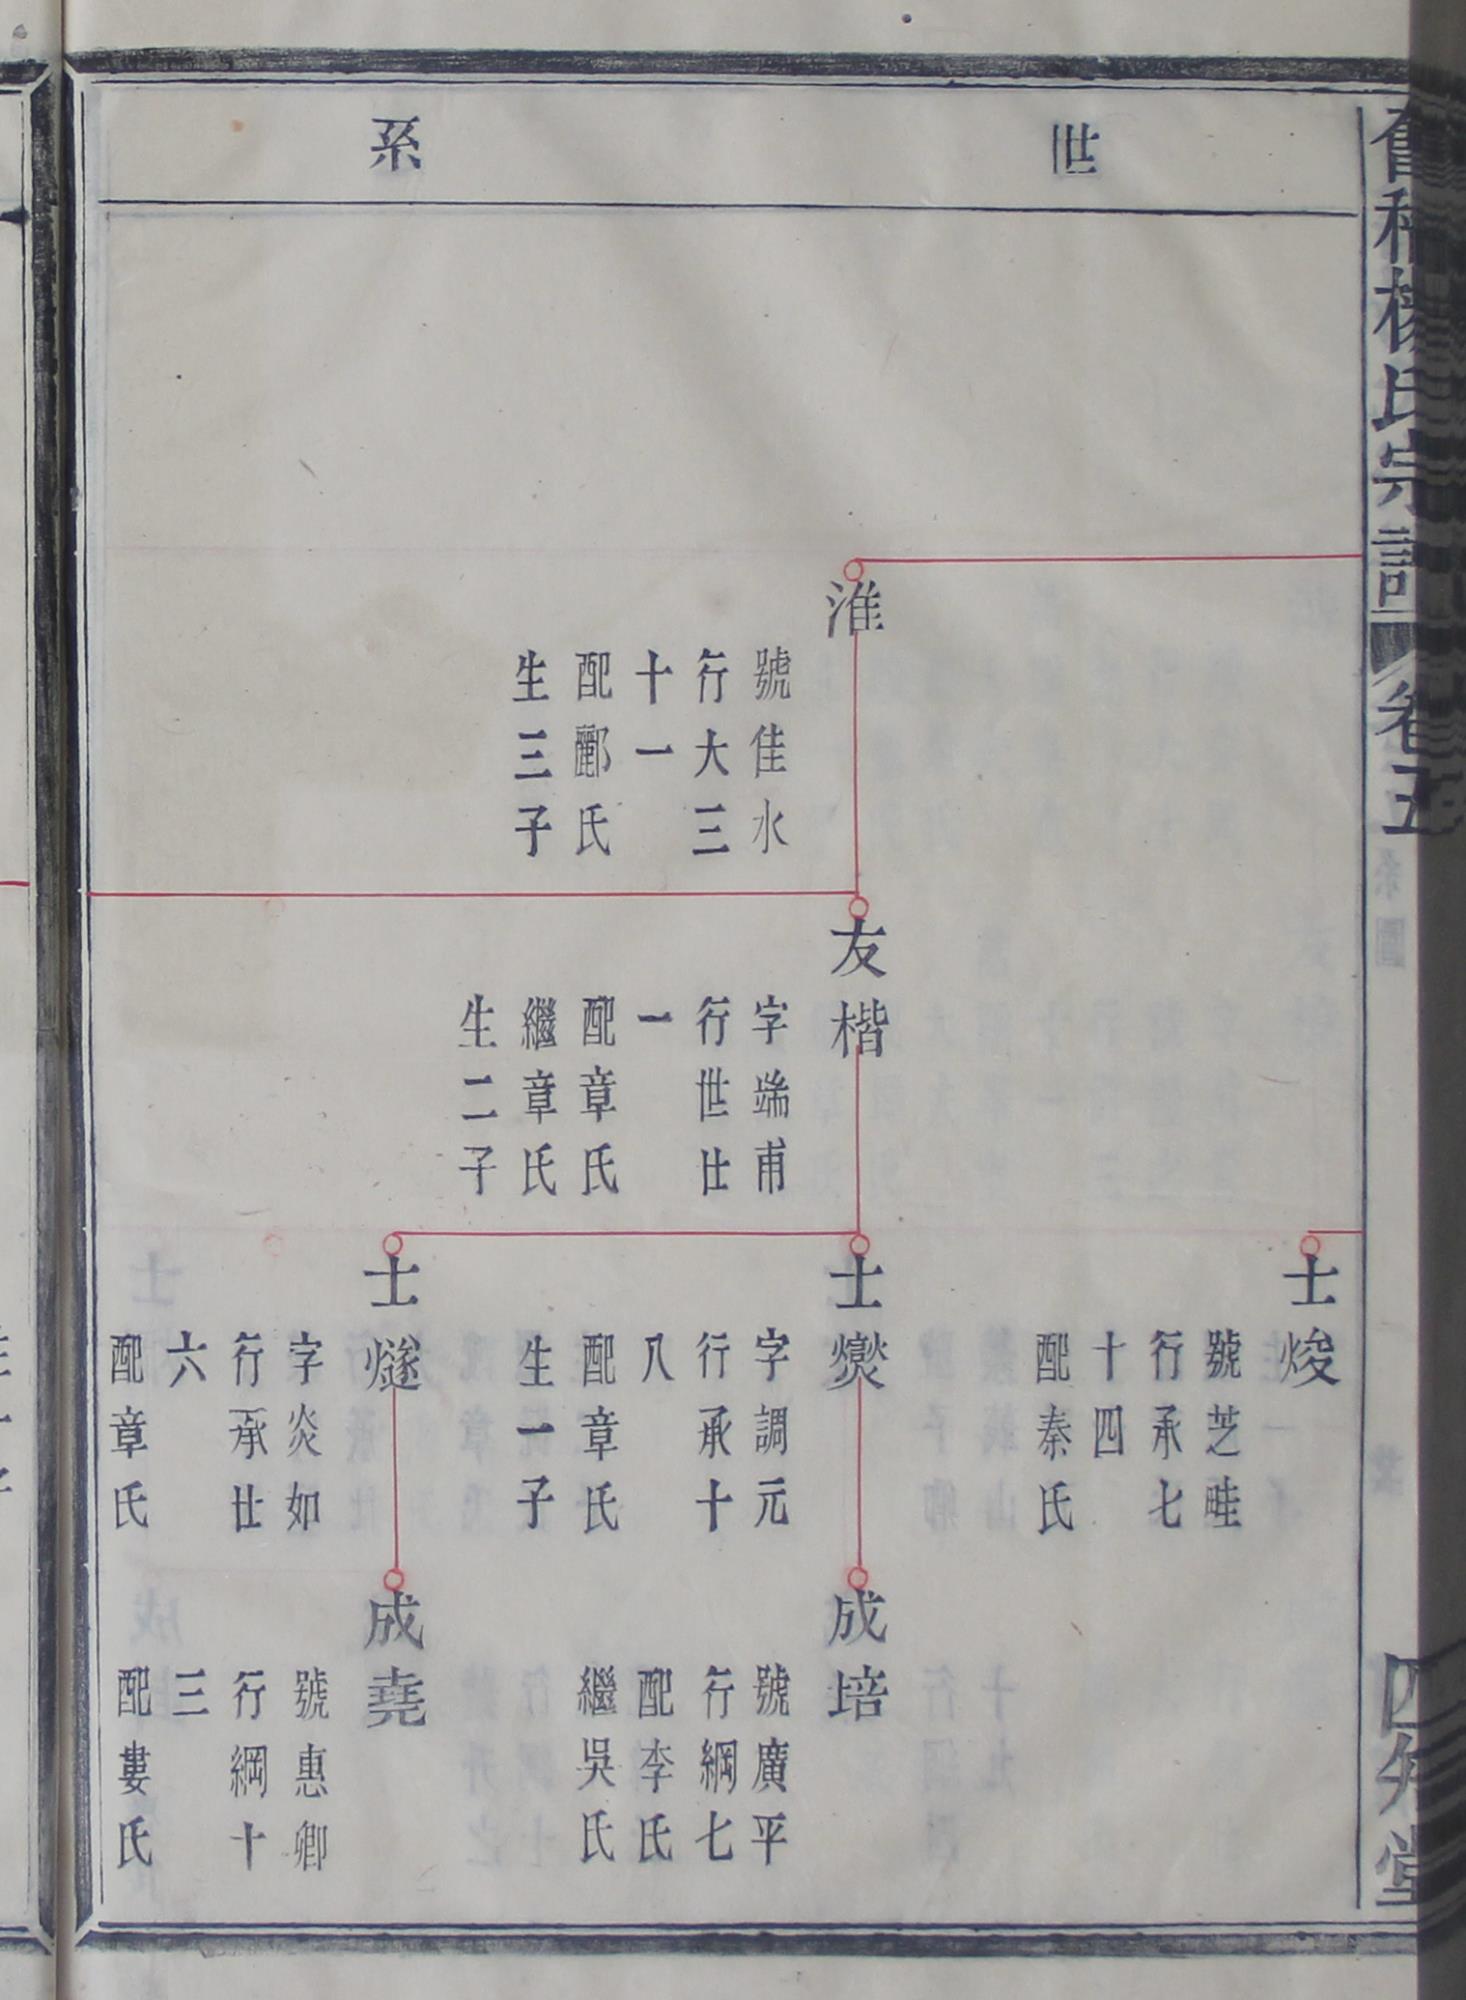 楊氏宗譜
卷五
四知堂
世系
淮
號佳水
行大三
十一
配酈氏
生三子
友楷
字端甫
行世仕
一
配章氏
繼章氏
生二子
士焌
號芝畦
行承七
十四
配秦氏
士爕
字調元
行承十
八
配章氏
生一子
士燧
字炎如
行承廿
六
配章氏
成培
號廣平
行綱七
配李氏
繼吳氏
成堯
號惠卿
行綱十
三
配婁氏